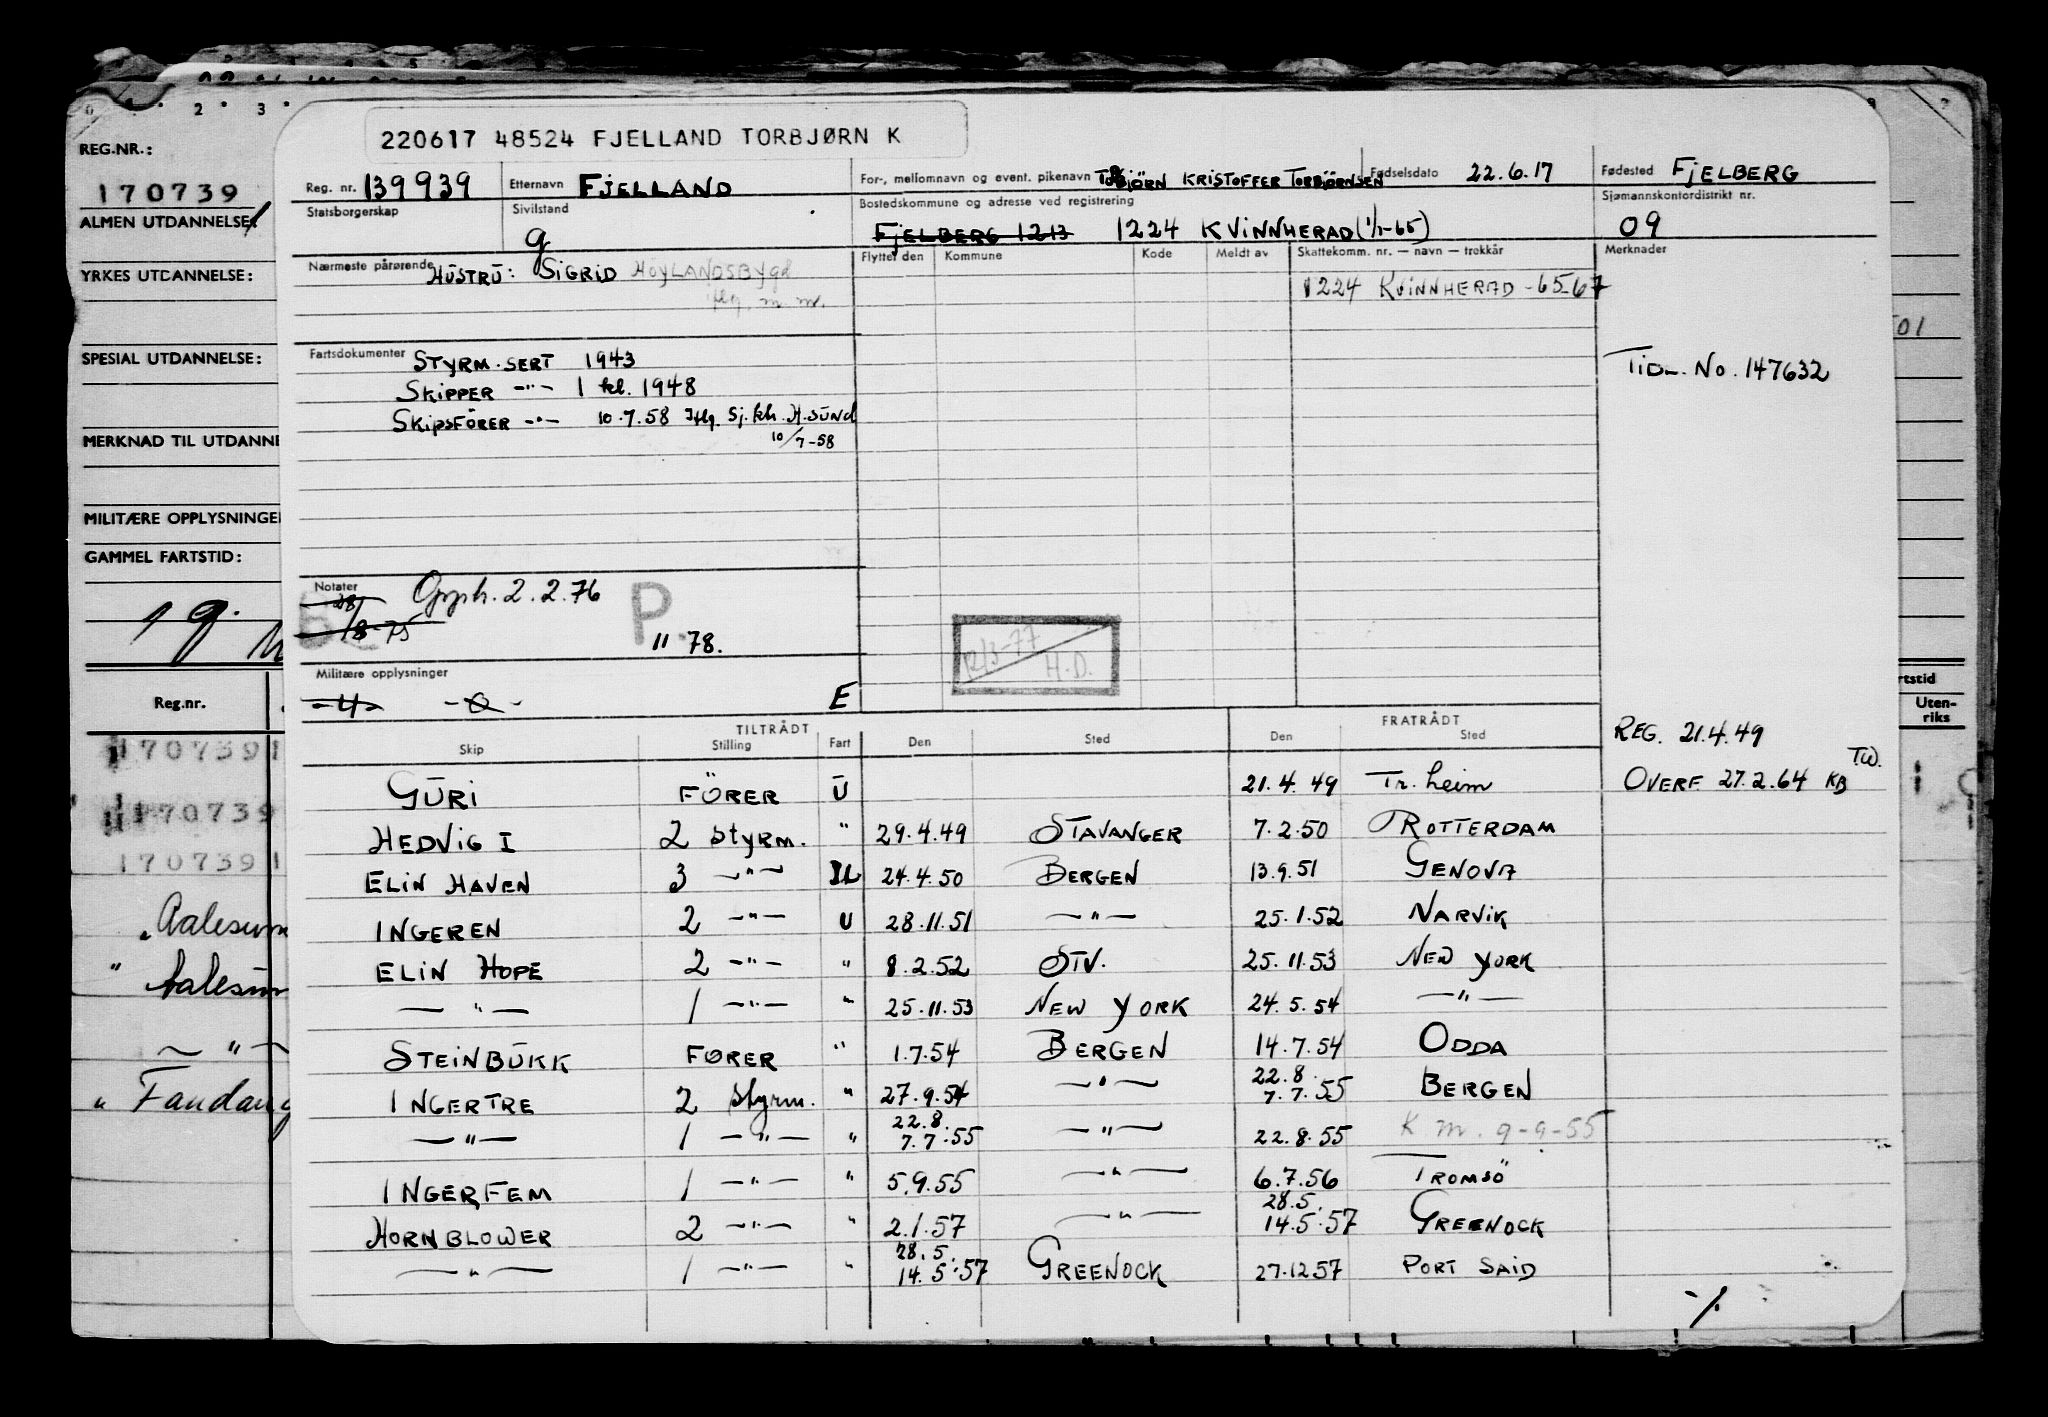 220617 48524 FJELLAND TORBJØRN K
Reg. nr. 139939 Etternavn FJELLAND For-, mellomnavn og event. pikenavn TORBJÖRN KRISTOFFER TORBJÖRNSEN Fødselsdato 22.6.17 Fødested FJELBERG
Statsborgerskap Sivilstand g Bostedskommune og adresse ved registrering FJELBERG 1213 1224 KVINNHERAD (1/1-65) Sjømannskontordistrikt nr. 09
Nærmeste pårørende HUSTRU: SIGRID HÖYLANDSBYGD
flg. m. m.
Flyttet den Kommune Kode Meldt av Skattekomm. nr. — navn — trekkår Merknader
1224 KVINNHERAD -65-67
Fartsdokumenter STYRM. SERT 1943
SKIPPER -"- 1 kl. 1948
SKIPSFÖRER -"- 10.7.58 Iflg. Sj.kh. H.SUND
10/7-58
TIDL. NO. 147632
Notater 28/8-75 Opph. 2.2.76 P.
11 78.
12/3-77
H.D.
Militære opplysninger
-4- -0- E
TILTRÅDT FRATRÅDT
Skip Stilling Fart Den Sted Den Sted
REG. 21.4.49
T.W.
GURI FÖRER U 21.4.49 Tr.heim OVERF 27.2.64 KB
HEDVIG I 2 styrm. " 29.4.49 STAVANGER 7.2.50 ROTTERDAM
ELIN HAVEN 3 -"- 24.4.50 BERGEN 13.9.51 GENOVA
INGEREN 2 -"- U 28.11.51 -"- 25.1.52 NARVIK
ELIN HOPE 2 -"- " 8.2.52 STV. 25.11.53 NEW YORK
-"- 1 -"- " 25.11.53 NEW YORK 24.5.54 -"-
STEINBUKK FØRER " 1.7.54 BERGEN 14.7.54 ODDA
INGERTRE 2 styrm. " 27.9.54 -"- 22.8. 7.7.55 BERGEN
-"- 1 -"- " 22.8. 7.7.55 -"- 22.8.55 K.m. 9-9-55
INGERFEM 1 -"- " 5.9.55 -"- 6.7.56 TROMSÖ
HORNBLOWER 2 -"- " 2.1.57 -"- 28.5. 14.5.57 GREENOCK
-"- 1 -"- " 28.5. 14.5.57 GREENOCK 27.12.57 PORT SAID
./.
0 2 3
REG.NR.:
170739
ALMEN UTDANNELSE:
YRKES UTDANNELSE:
SPESIAL UTDANNELSE:
MERKNAD TIL UTDANNE
MILITÆRE OPPLYSNINGER
GAMMEL FARTSTID:
1 g.
Reg.nr.
1707391
170739
1707391
" Aalesun
" Aalesun
-"-
" Fandang
01
rtstid
Uten-
riks